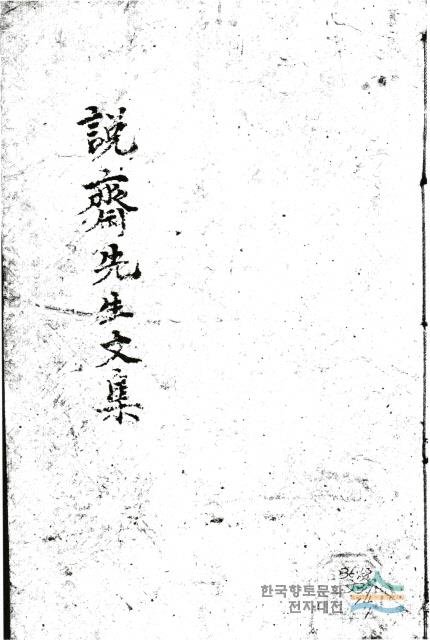 說齋先生文集
한국향토문화
전자대전